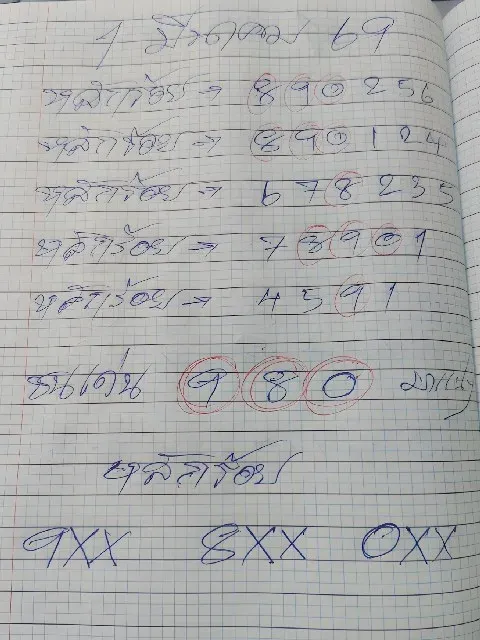 1 มีนาคม 69
หลักร้อย → 890256
หลักร้อย → 890124
หลักร้อย → 678235
หลักร้อย → 73901
หลักร้อย → 4591
ชนเด่น 9 8 0
หลักร้อย
9XX 8XX 0XX